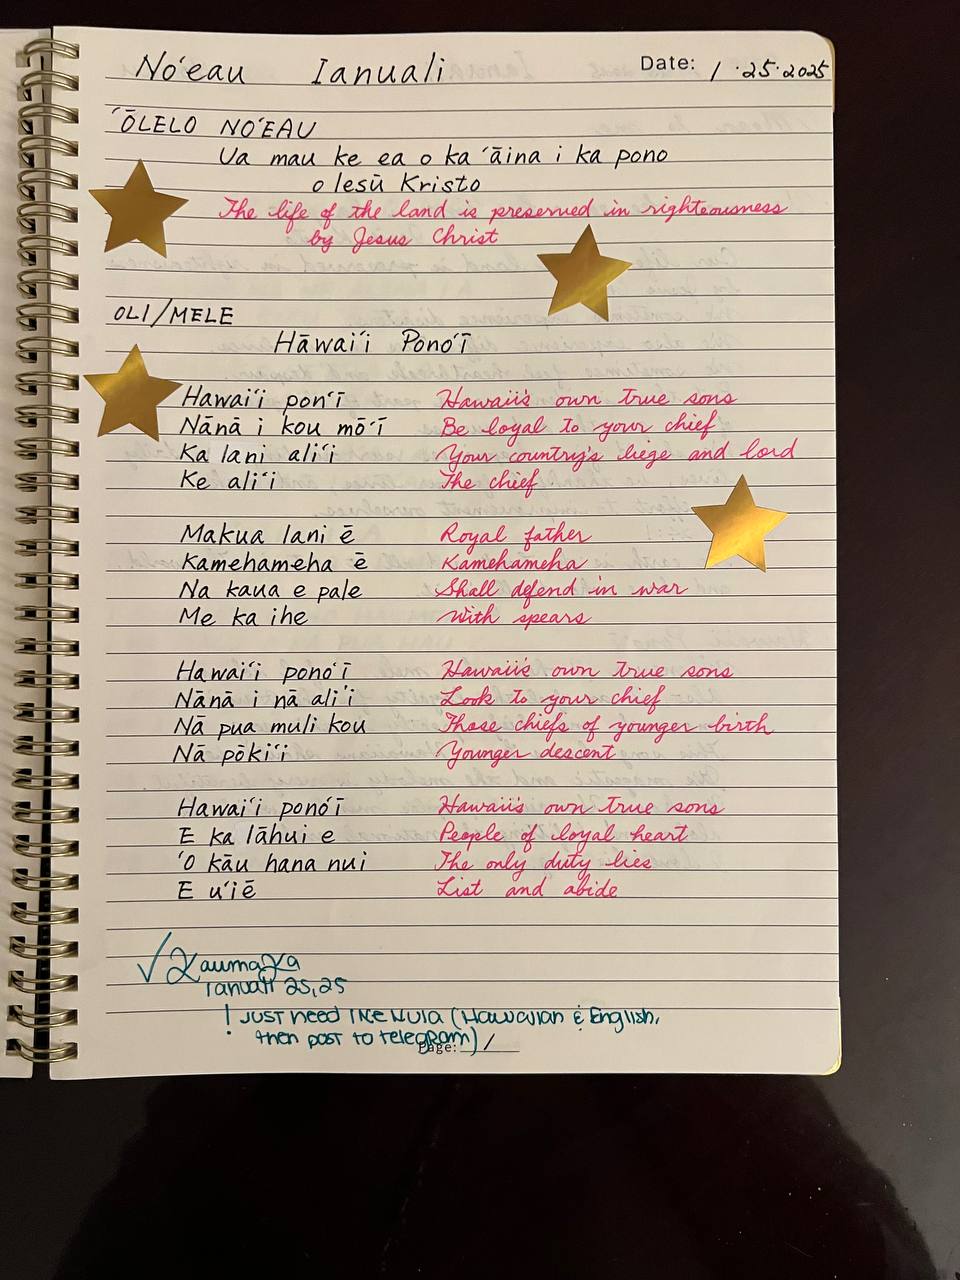 No'eau Ianuali Date: 1.25.2025
'ŌLELO NO'EAU
Ua mau ke ea o ka 'āina i ka pono
o Iesū Kristo
The life of the land is preserved in righteousness
by Jesus Christ
OLI/MELE
Hāwai'i Pono'ī
Hawai'i pon'ī Hawaii's own true sons
Nānā i kou mō'ī Be loyal to your chief
Ka lani ali'i Your country's liege and lord
Ke ali'i The chief
Makua lani ē Royal father
Kamehameha ē Kamehameha
Na kaua e pale Shall defend in war
Me ka ihe With spears
Hawai'i pono'ī Hawaii's own true sons
Nānā i nā ali'i Look to your chief
Nā pua muli kou Those chiefs of younger birth
Nā pōki'i Younger descent
Hawai'i pono'ī Hawaii's own true sons
E ka lāhui e People of loyal heart
'O kāu hana nui The only duty lies
E u'iē List and abide
✓ Kaumaka
Ianuali 25, 25
! JUST need THE HULA (Hawaiian & English,
then post to telegram)
Page: 1